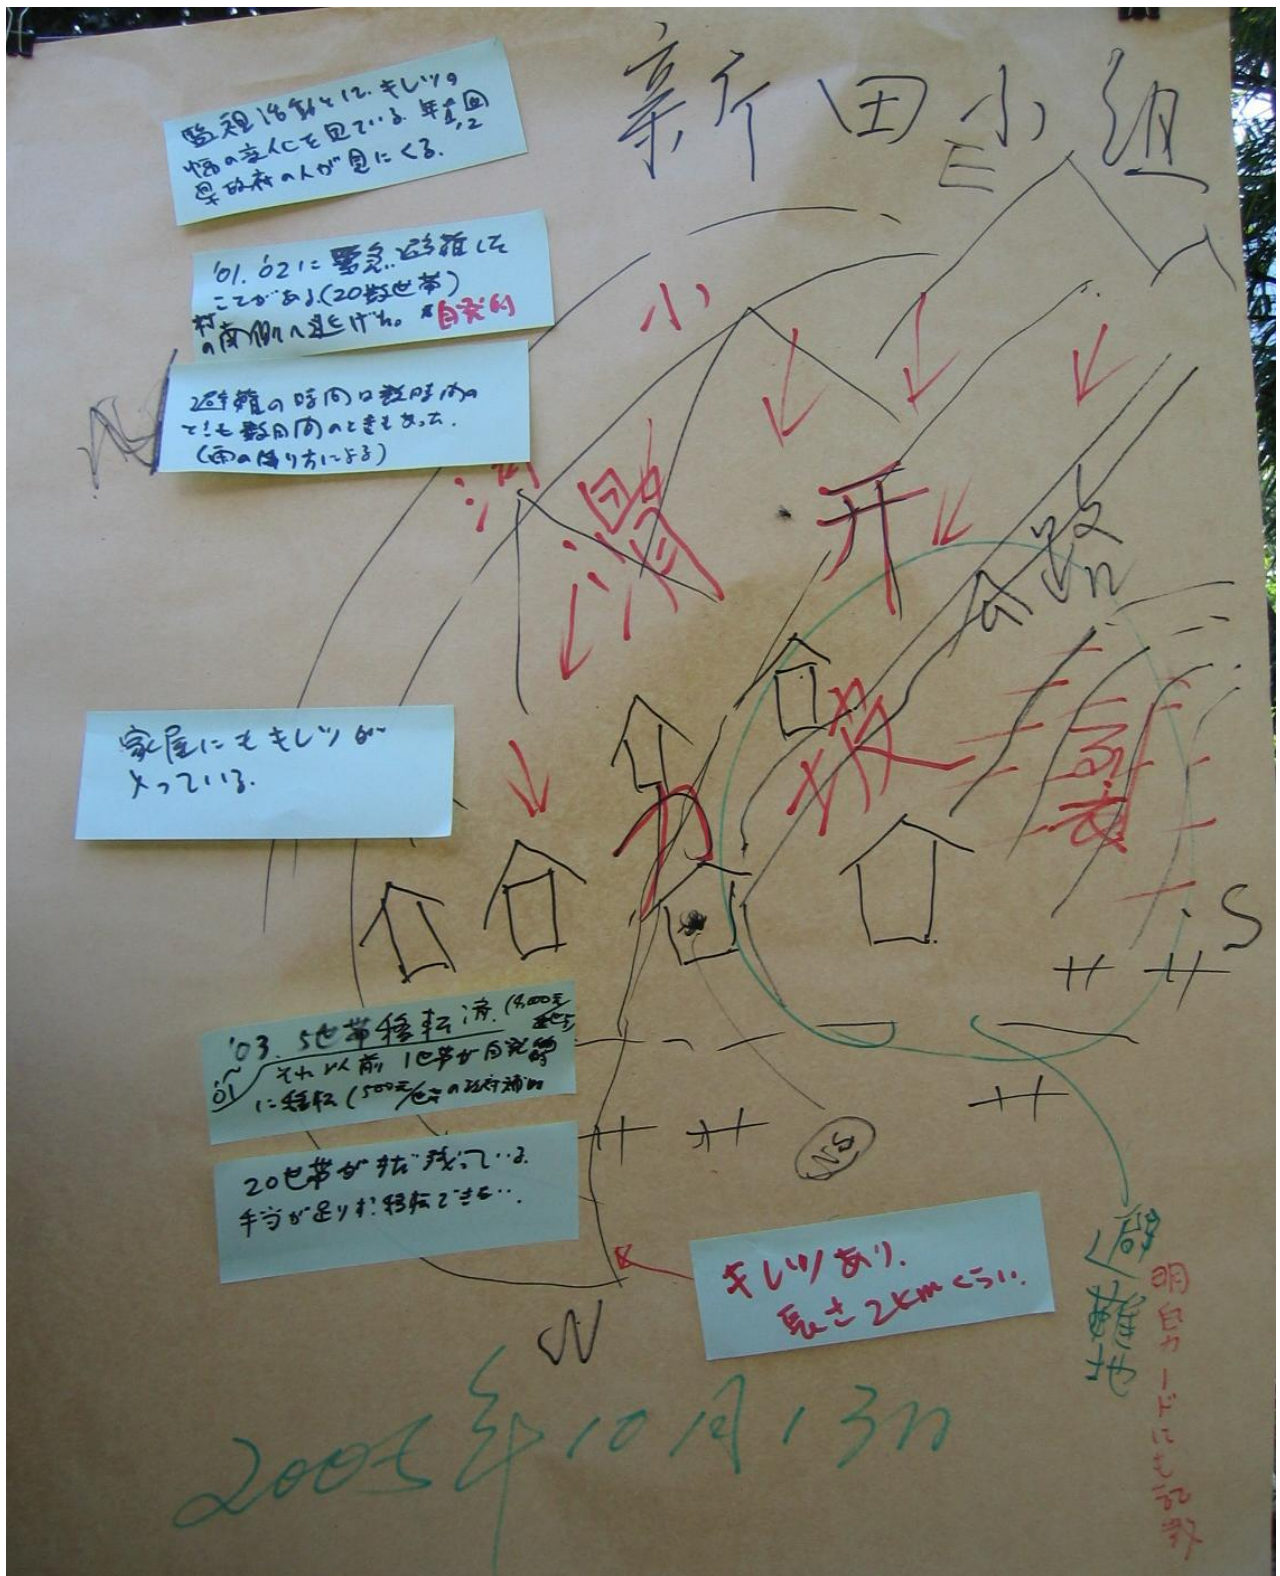 新田小組
E
監視活動として、キレツの
幅の変化を見ている. 年1,2回
県政府の人が見にくる.
'01.'02に緊急避難した
ことがある.(20数世帯)
村の南側へ逃げた。 自発的
避難の時間は数時間の
ときも数日間のときもあった.
(雨の降り方による)
N
小
開
公路
家屋にもキレツが
入っている.
裂
S
'03. 5世帯移転済.
'01
それ以前 1世帯が自発的
に移転 (500元/世帯の政府補助
20世帯がまだ残っている.
手当が足りず移転できない..
NS
キレツあり.
長さ2kmくらい.
避難地
明白カードにも記載
W
2005年10月13日